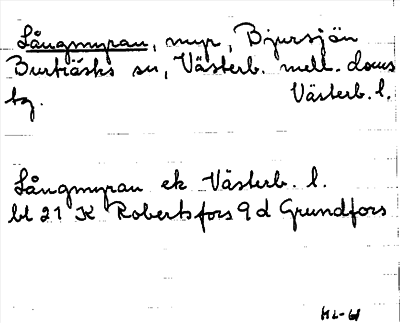 Långmyran, myr, Bjursjön
Burträsks sn, Västerb. mell. doms
tg. Västerb. l.
Långmyran ek Västerb. l.
bl 21 K Robertsfors 9 d Grundfors
ML-61